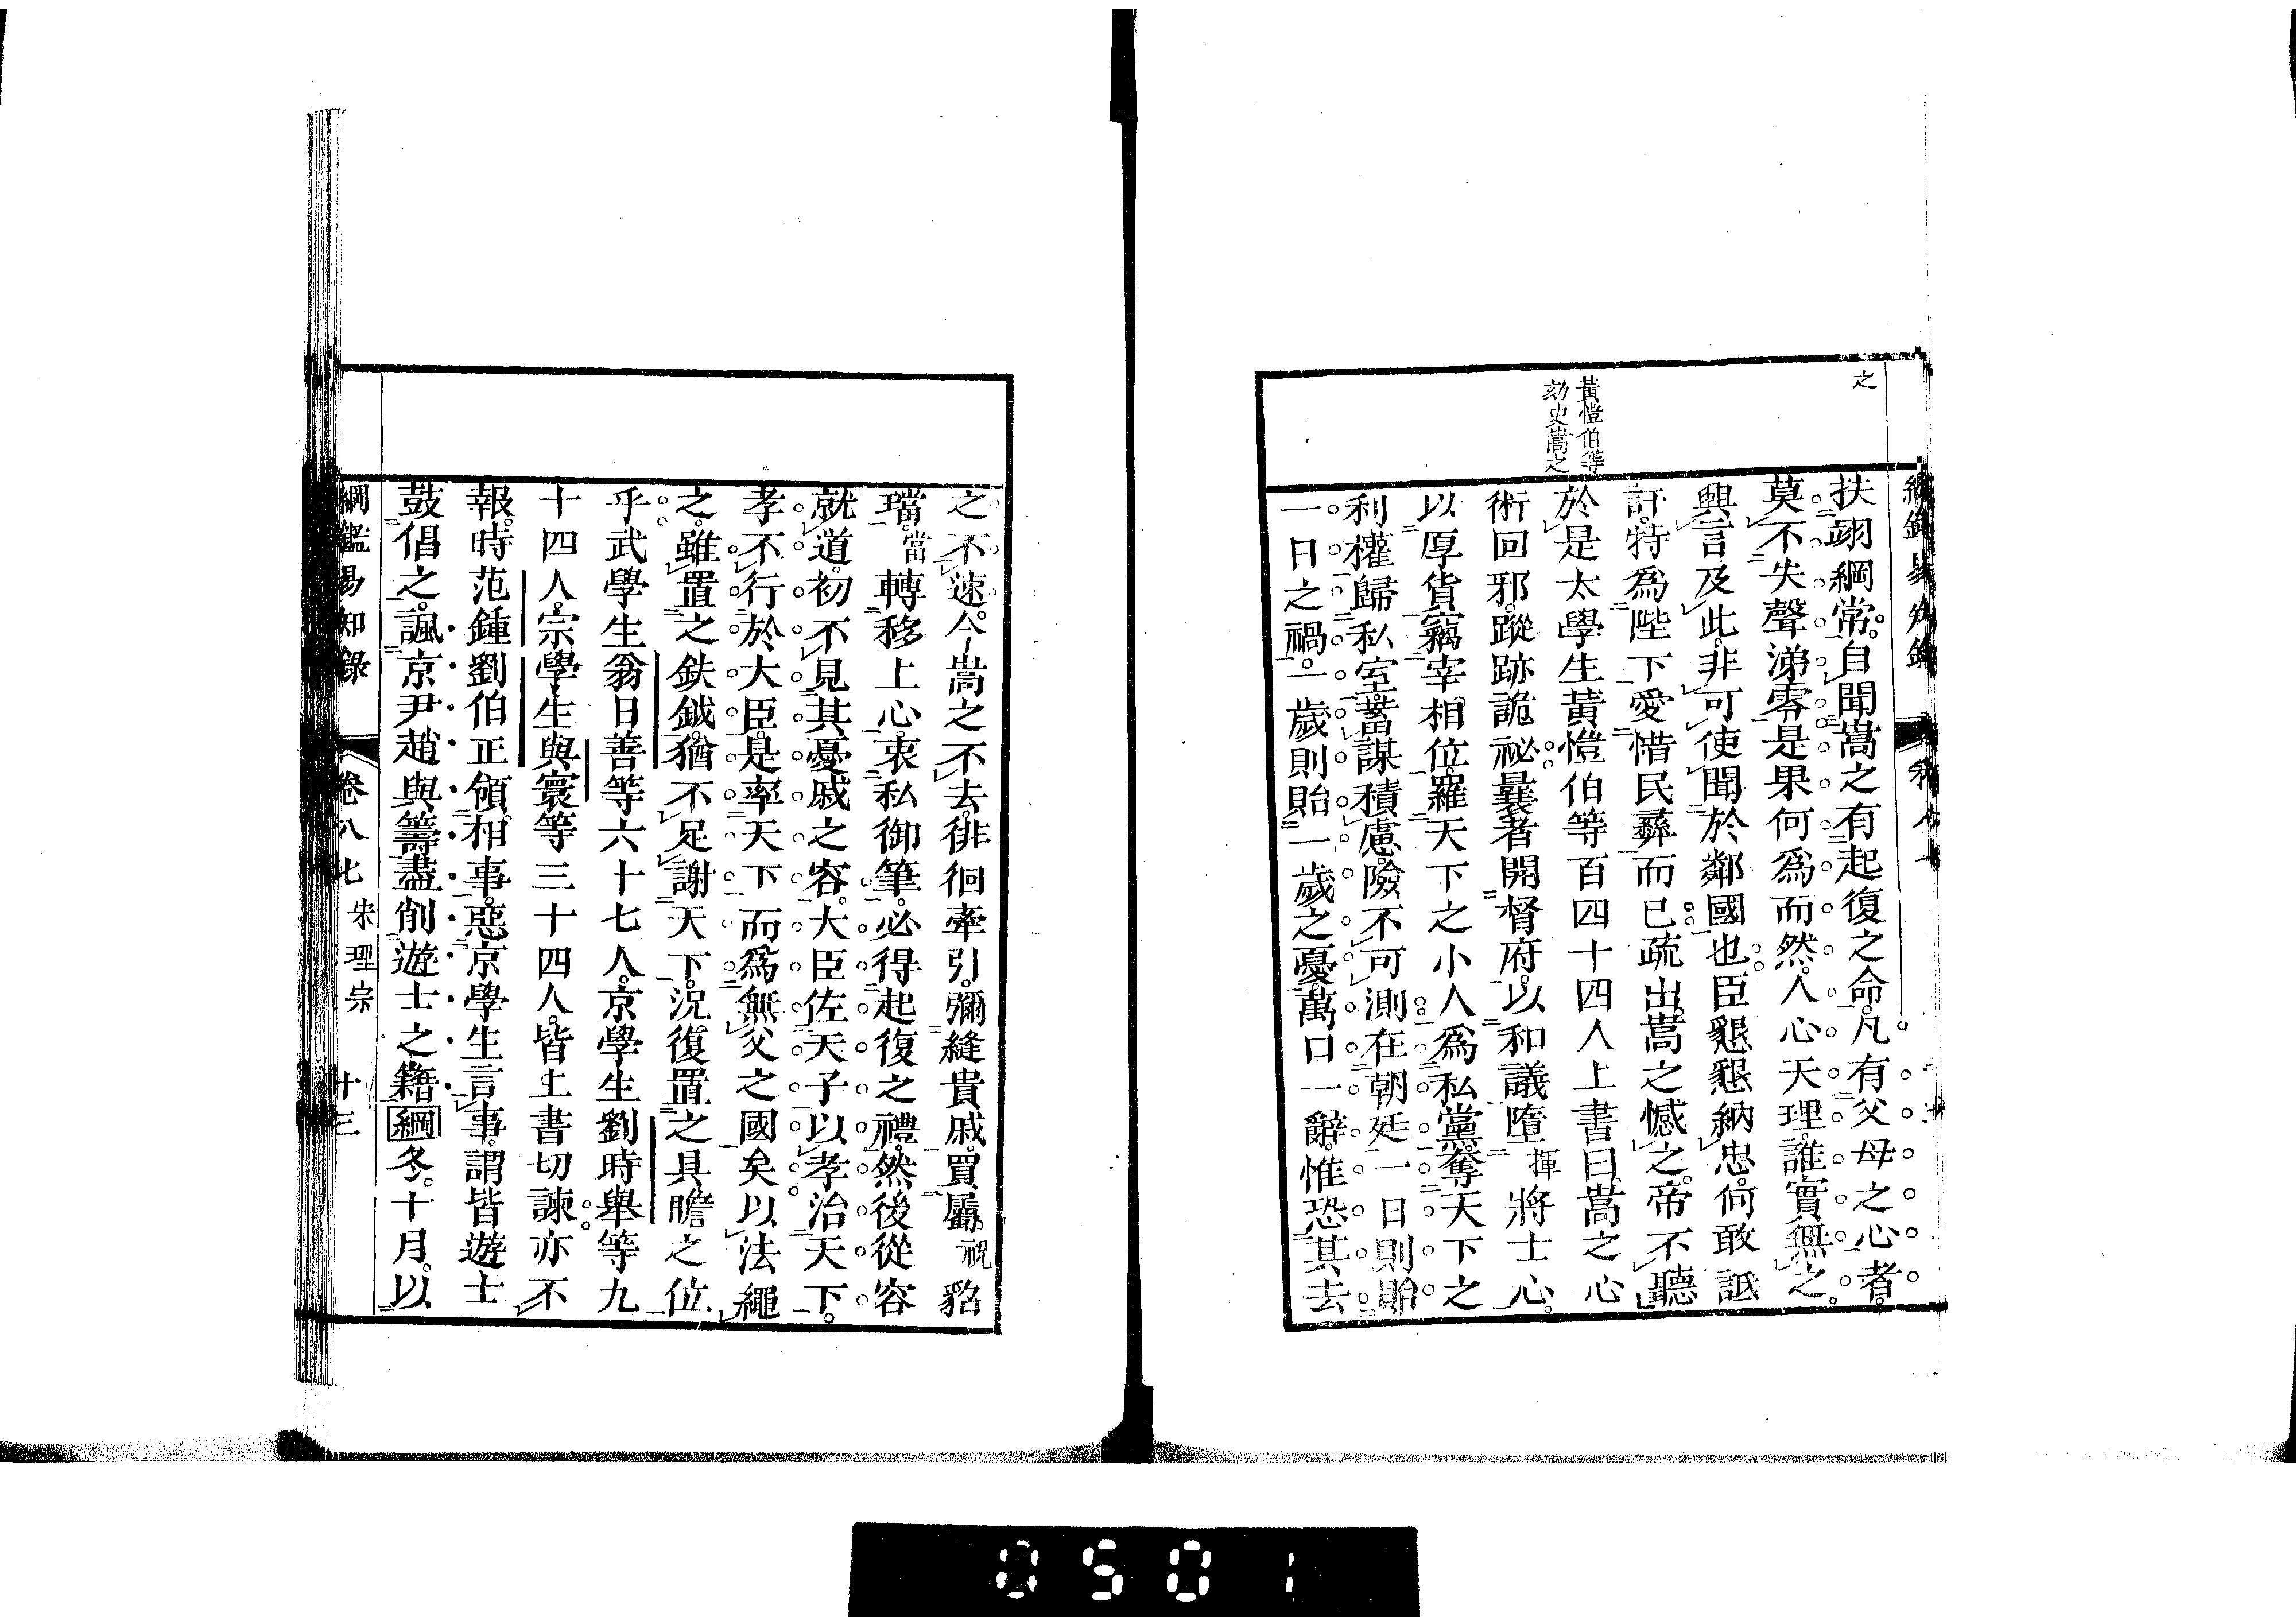 之
黃愷伯等
劾史嵩之
扶翊綱常。自聞嵩之有起復之命。凡有父母之心者。
莫不失聲涕零。是果何爲而然。人心天理。誰實無之。
興言及此。非可使聞於鄰國也。臣懇懇納忠。何敢詆
訐。特爲陛下愛惜民彝而已。疏出。嵩之憾之。帝不聽
於是太學生黃愷伯等百四十四人上書曰。嵩之心
術回邪。蹤跡詭祕。曩者開督府。以和議墮揮將士心。
以厚貨竊宰相位。羅天下之小人爲私黨。奪天下之
利權歸私室。蓄謀積慮。險不可測。在朝廷一日。則貽
一日之禍。一歲則貽一歲之憂。萬口一辭。惟恐其去
之不速。今嵩之不去。徘徊牽引。彌縫貴戚。買屬祝貂
璫。當轉移上心。衷私御筆。必得起復之禮。然後從容
就道。初不見其憂戚之容。大臣佐天子以孝治天下。
孝不行於大臣。是率天下而爲無父之國矣。以法繩
之。雖置之鈇鉞。猶不足謝天下。況復置之具瞻之位
乎。武學生翁日善等六十七人。京學生劉時舉等九
十四人。宗學生與寰等三十四人。皆上書切諫。亦不
報。時范鍾劉伯正領相事。惡京學生言事。謂皆遊士
鼓倡之。諷京尹趙與籌盡削遊士之籍。綱冬。十月。以
綱鑑易知錄 卷八七 宋理宗 十三
0501